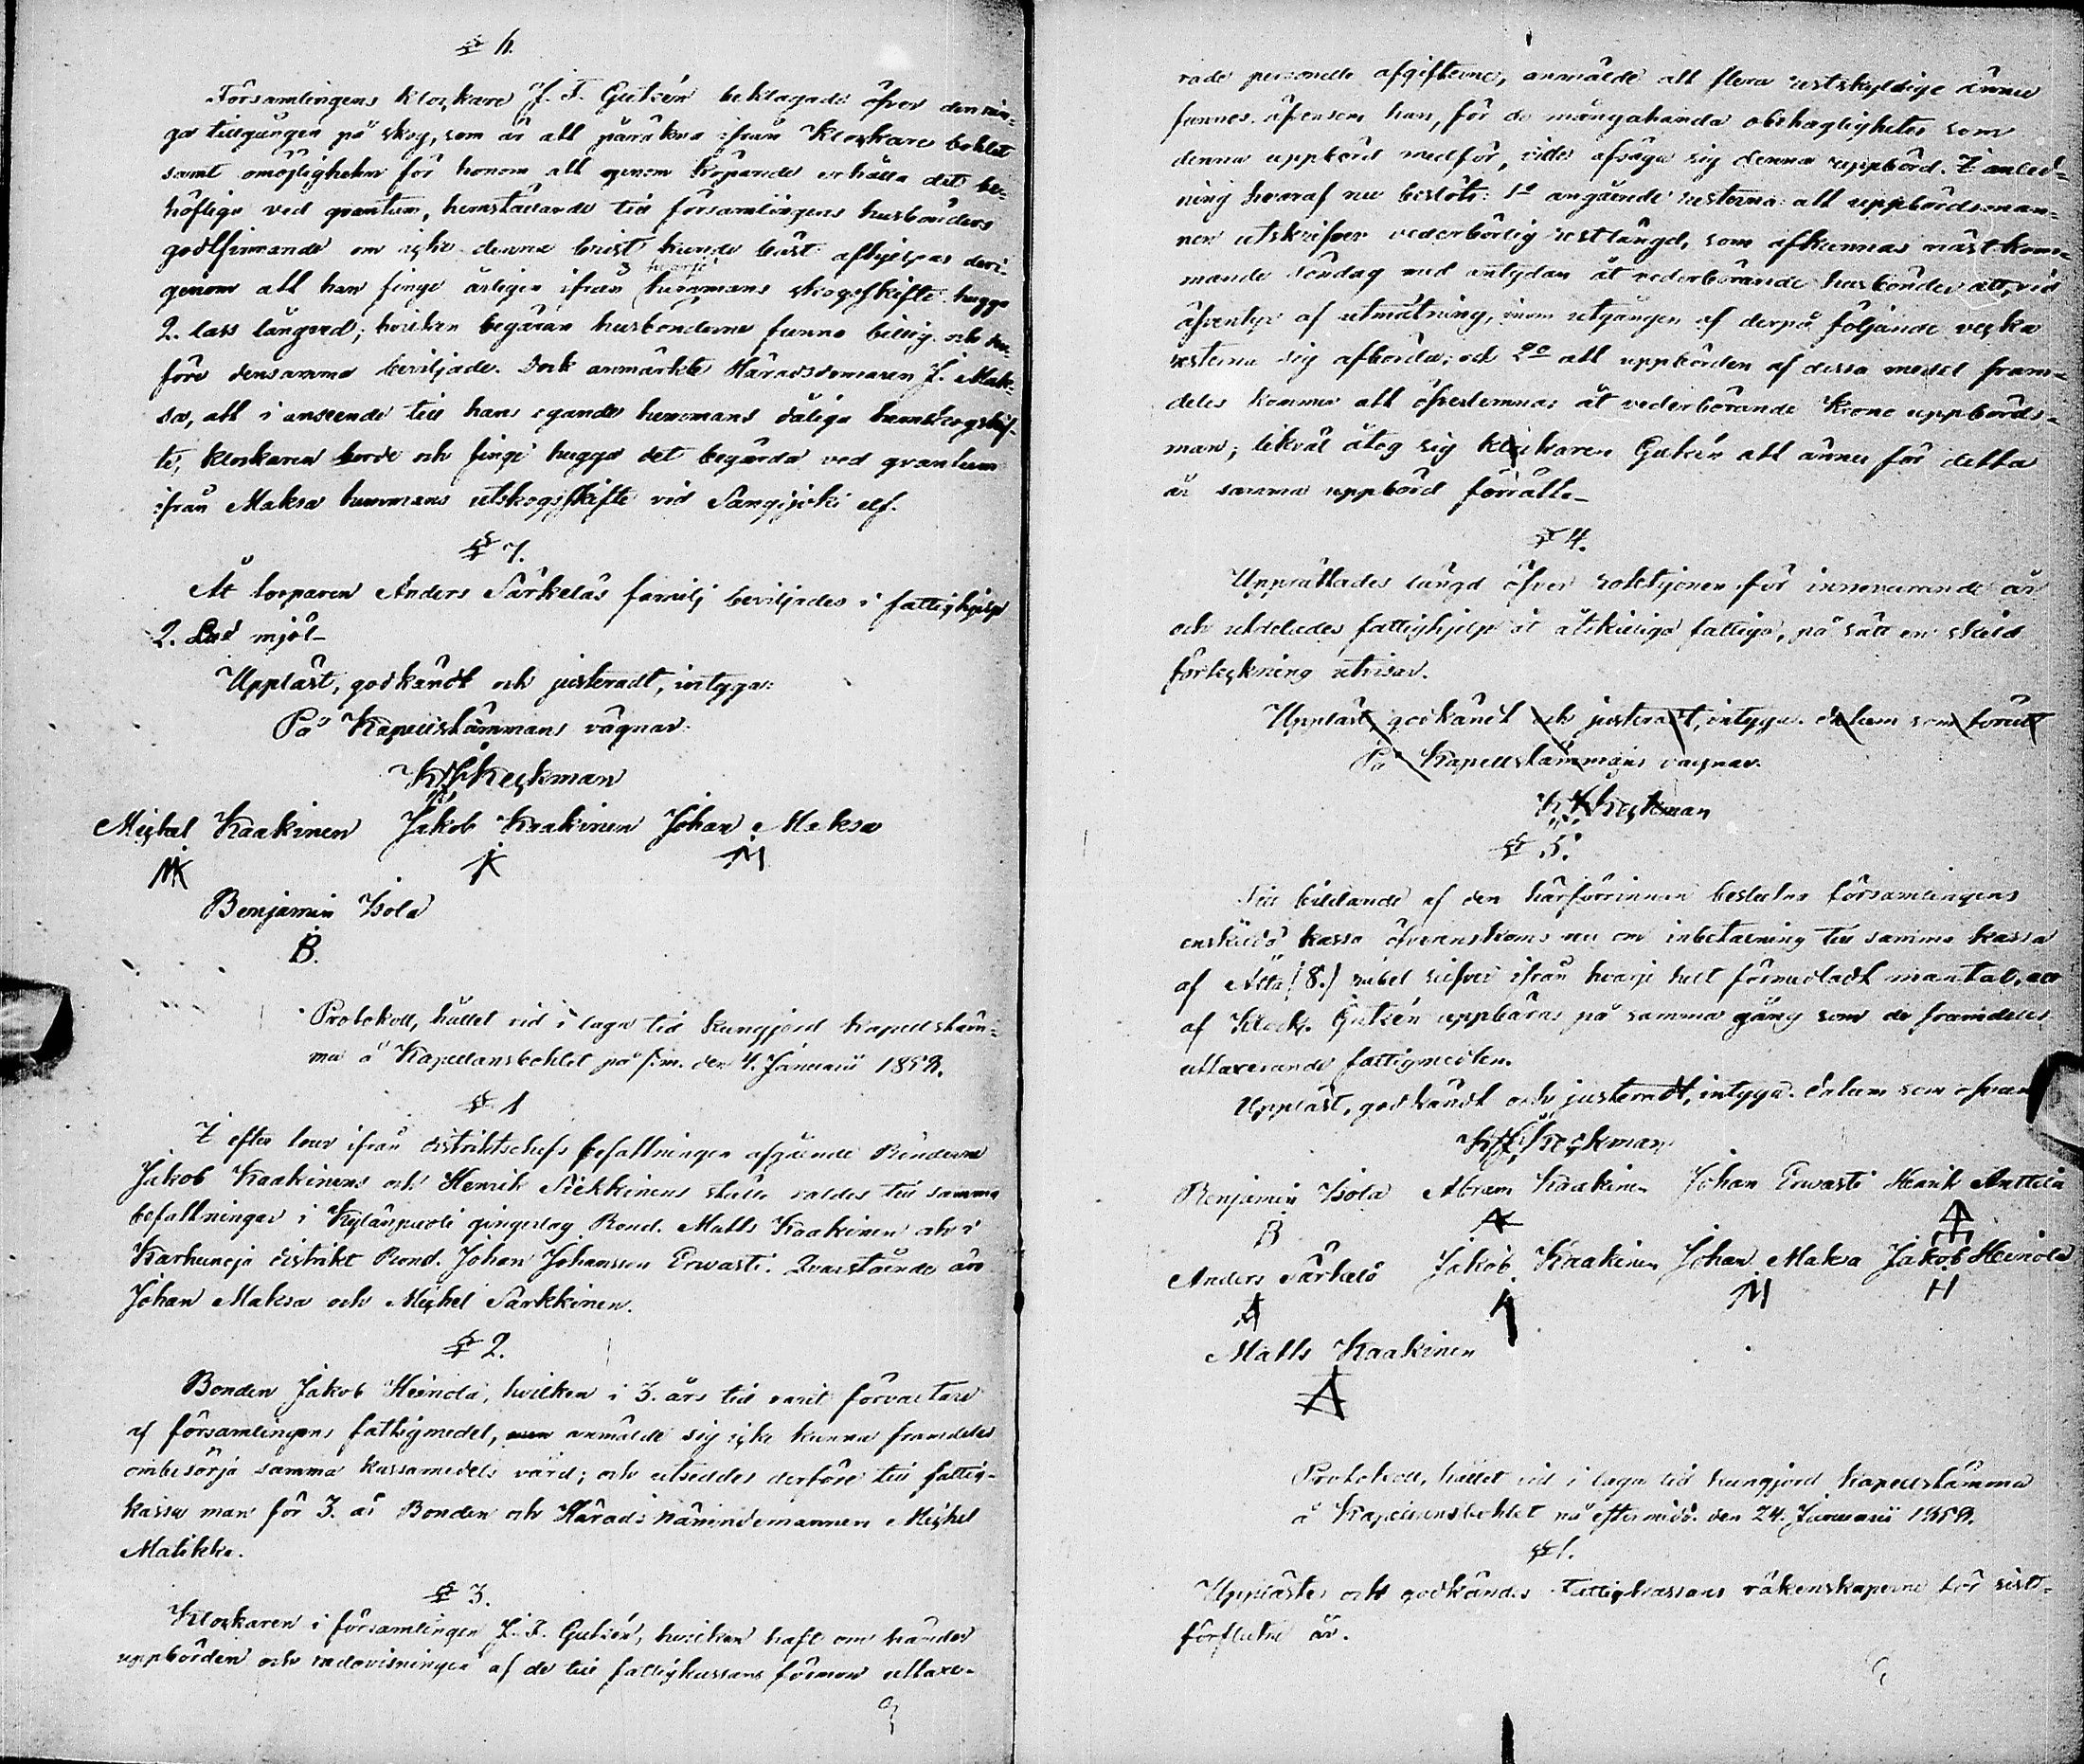 § 6.
Församlingens klockare J. F. Gutzén beklagade öfver den rin-
ga tillgången på skog, som är att påräkna ifrån Klockare bohlet
samt omöjligheten för honom att genom köpande erhålla det be-
höfliga ved quantum, hemställande till församlingens husbönders
godtfinnande om icke denna brist kunde bäst afhjelpas deri-
genom att han finge årligen ifrån hvarje hemmans skogsskifte hugga
2. lass långved; hvilken begäran husbönderne funno billig och der-
före densamma beviljade. Dock anmärkte Häradsdomaren J. Mak-
sa, att i anseende till hans egande hemmans dåliga hemskogsskif-
te, klockaren borde och finge hugga det begärda ved quantum
ifrån Maksa hemmans utskogsskifte vid Sangijoki elf.
§ 7.
Åt torparen Anders Särkeläs familj beviljades i fattighjelp
2. Lud mjöl
Uppläst, godkändt och justeradt, intygar:
På Kapellstämmans vägnar:
K. F. Keckman
Michel Kaakinen Jakob Kaakinen Johan Maksa
MK K M
Benjamin Isola
B.
Protokoll, hållet vid i laga tid kungjord Kapellstäm-
ma å Kapellansbohlet på f.m. den 4. Januarii 1858.
§ 1
I efter ifrån distriktschefs befattningen afgående Bönderne
Jakob Kaakinens och Henrik Siekkinens ställe valdes till samma
befattningar i Kylänpuoli gingerlag Bond. Matts Kaakinen och i
Karhunoja distrikt Bond. Johan Johansson Erwasti. Qvarstående äro
Johan Maksa och Michel Sarkkinen.
§ 2.
Bonden Jakob Heinola, hvilken i 3. års tid varit förvaltare
af församlingens fattigmedel, anmälde sig icke kunna framdeles
ombesörja samma kassamedels vård; och utseddes derföre till fattig-
kassa man för 3. år Bonden och Härads nämndemannen Michel
Matikka.
§ 3.
Klockaren i församlingen J. F. Gutzén, hvilken haft om händer
uppbörden och redovisningen af de till fattigkassans förmon uttaxe-
rade personella afgifterne, anmälde att flera restskyldige ännu
funnos, äfvensom han, för de mångahanda obehagligheter som
denna uppbörd medför, ville afsäga sig denna uppbörd. I anled-
ning hvaraf nu beslöts: 1o angående resterna: att uppbördsman-
nen utskrifver vederbörlig restlängd, som afkunnas nästkom-
mande söndag med antydan åt vederbörande husbönder att, vid
äfventyr af utmätning, inom utgången af derpå följande vecka
resterna sig afbörda; och 2o att uppbörden af dessa medel fram-
deles kommer att öfverlemnas åt vederbörande Krono uppbörds-
man; likväl åtog sig klockaren Gutzén att ännu för detta
år samma uppbörd förrätta
§ 4.
Upprättades längd öfver rotehjonen för innevarande år
och utdelades fattighjelp åt åtskilliga fattiga, på sätt en skild
förteckning utvisar.
Uppläst, godkändt och justeradt, intygar. datum som förutt
På Kapellstämmans vägnar.
K. F. Keckman
§ 5.
Till bildande af den härförinnan beslutna församlingens
enskilda kassa öfverenskoms nu om inbetalning till samma kassa
af Åtta (8.) rubel silfver ifrån hvarje helt förmedladt mantal, att
af Klock. Gutzén uppbäras på samma gång som de framdeles
uttaxerande fattigmedlen.
Uppläst, godkändt och justeradt, intygar. datum som ofvan
K. F. Keckman
Benjamin Isola Abram Kaakinen Johan Erwasti Henrik Anttila
B
Anders Särkelä Jakob Kaakinen Johan Maksa Jakob Heinola
A M H
Matts Kaakinen
Protokoll, hållet vid i laga tid kungjord Kapellstämma
å Kapellansbohlet på eftermidd. den 24. Januarii 1858.
§ 1.
Upplästes och godkändes Fattigkassans räkenskaperne för sist-
förflutna år.